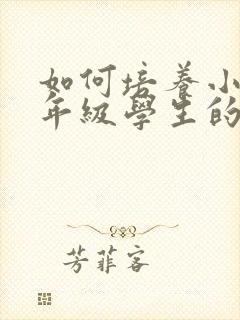 如何培養小
年級學生的
芳菲客